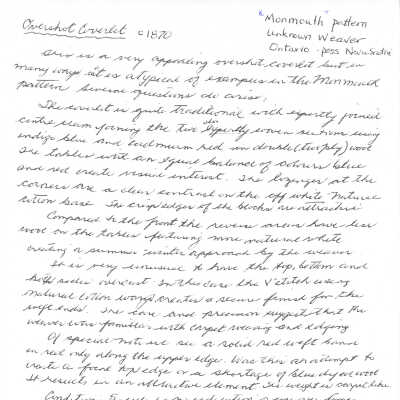 Overshot Coverlet c 1870
"Monmouth" pattern
Unknown Weaver
Ontario - poss Nova Scotia
This is a very appealing overshot coverlet but in
many ways it is atypical of examples in the Monmouth
pattern. Several questions do arise.
The coverlet is quite traditional with expertly joined
centre seam forming the two expertly woven sections using
indigo blue and and madder red in double (two ply) wool
The tables with an equal balance of colours blue
and red create visual interest. The lozenges at the
corners are a clear contrast on the off white natural
cotton base. The crisp edges of the blocks are attractive
Compared to the front the reverse areas have less
wool on the tables featuring more natural white
creating a summer/winter approach by the weaver
It is very unusual to have the top, bottom and
both sides In this case the V stitch using
natural cotton creates a secure finish for the
weft ends. The care and precision suggest that the
weaver was familiar with carpet weaving and edging
Of special note we see a solid red weft
in red only along the upper edge. Was this an attempt to
create a top edge or a shortage of blue dyed wool
It results in an attractive element. Its weight is carpet like.